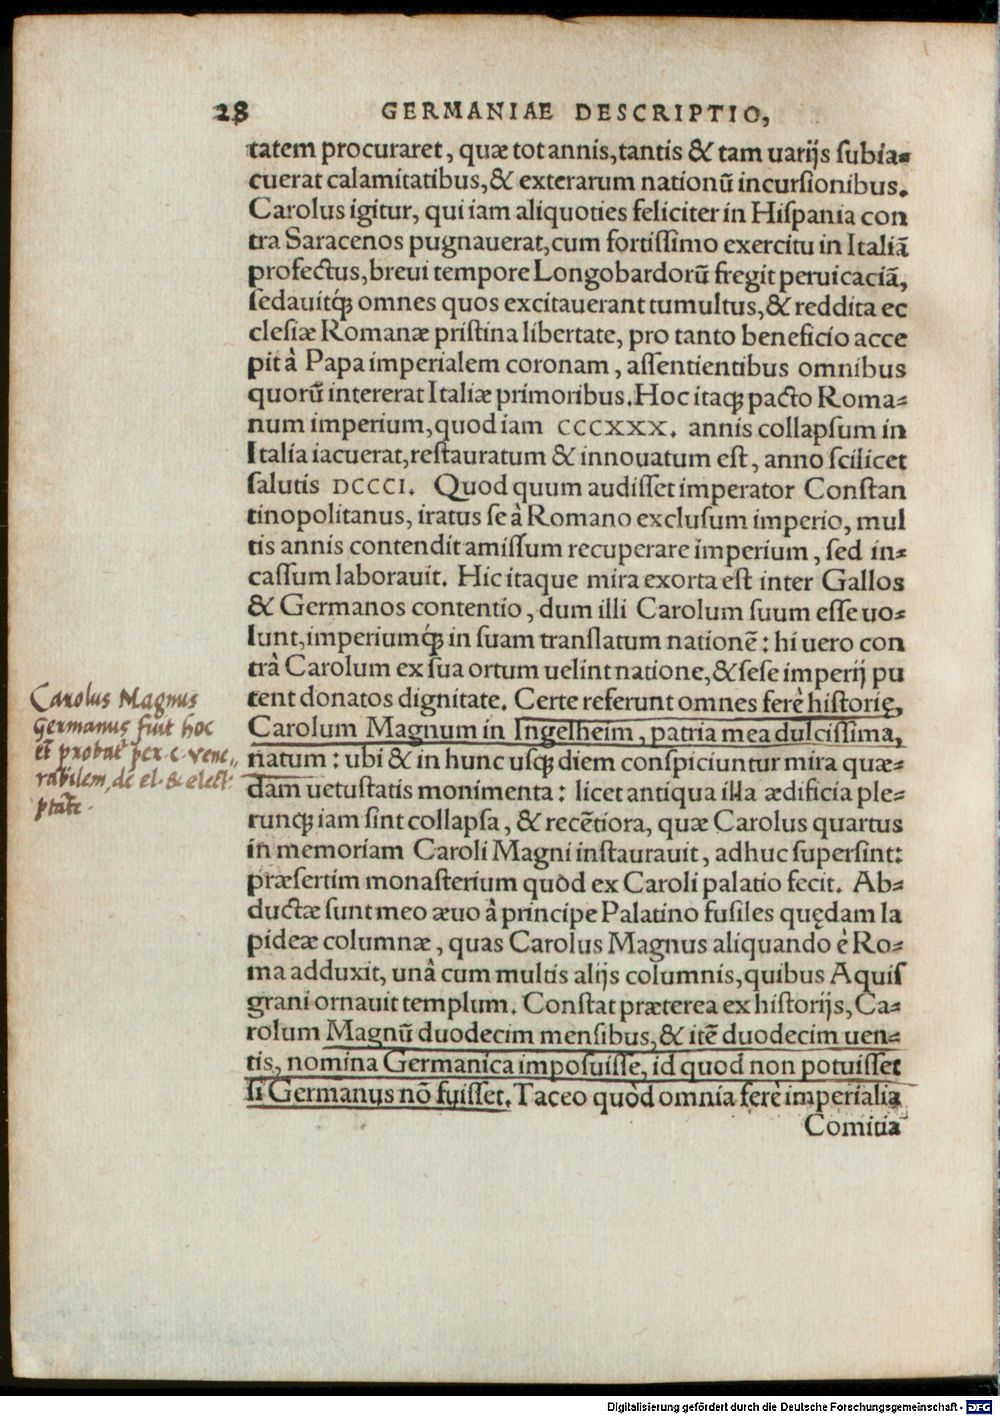 28 GERMANIAE DESCRIPTIO,
tatem procuraret, quæ tot annis, tantis & tam uarijs ſubia-
cuerat calamitatibus, & exterarum nationũ incurſionibus.
Carolus igitur, qui iam aliquoties feliciter in Hiſpania con
tra Saracenos pugnauerat, cum fortiſſimo exercitu in Italiã
profectus, breui tempore Longobardorũ fregit peruicaciã,
ſedauitq́ꝫ omnes quos excitauerant tumultus, & reddita ec
cleſiæ Romanæ priſtina libertate, pro tanto beneficio acce
pit à Papa imperialem coronam, aſſentientibus omnibus
quorũ intererat Italiæ primoribus. Hoc itaqꝫ pacto Roma-
num imperium, quod iam CCCXXX. annis collapſum in
Italia iacuerat, reſtauratum & innouatum eſt, anno ſcilicet
ſalutis DCCCI. Quod quum audiſſet imperator Conſtan
tinopolitanus, iratus ſe à Romano excluſum imperio, mul
tis annis contendit amiſſum recuperare imperium, ſed in-
caſſum laborauit. Hic itaque mira exorta eſt inter Gallos
& Germanos contentio, dum illi Carolum ſuum eſſe uo-
lunt, imperiumq́ꝫ in ſuam tranſlatum nationẽ: hi uero con
trà Carolum ex ſua ortum uelint natione, & ſeſe imperij pu
tent donatos dignitate. Certe referunt omnes ferè hiſtorię,
Carolum Magnum in Ingelheim, patria mea dulciſſima,
natum: ubi & in hunc uſqꝫ diem conſpiciuntur mira quæ-
dam uetuſtatis monimenta: licet antiqua illa ædificia ple-
runqꝫ iam ſint collapſa, & recẽtiora, quæ Carolus quartus
in memoriam Caroli Magni inſtaurauit, adhuc ſuperſint:
præſertim monaſterium quòd ex Caroli palatio fecit. Ab-
ductæ ſunt meo æuo à principe Palatino fuſiles quędam la
pideæ columnæ, quas Carolus Magnus aliquando è Ro-
ma adduxit, unà cum multis alijs columnis, quibus Aquiſ
grani ornauit templum. Conſtat præterea ex hiſtorijs, Ca-
rolum Magnũ duodecim menſibus, & itẽ duodecim uen-
tis, nomina Germanica impoſuiſſe, id quod non potuiſſet
ſi Germanus nõ fuiſſet. Taceo quòd omnia ferè imperialia
Comitia
Carolus Magnus
Germanus fuit hoc
et probat per c. vene„
rabilem, de el. & elect.
ptate.
Digitalisierung gefördert durch die Deutsche Forschungsgemeinschaft - DFG